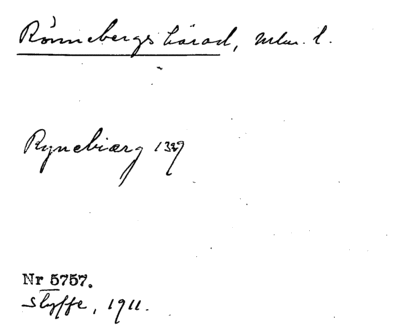 Rönnebergs härad, Mlm. l.
Rynebiærg 1329
Nr 5757.
Styffe, 1911.